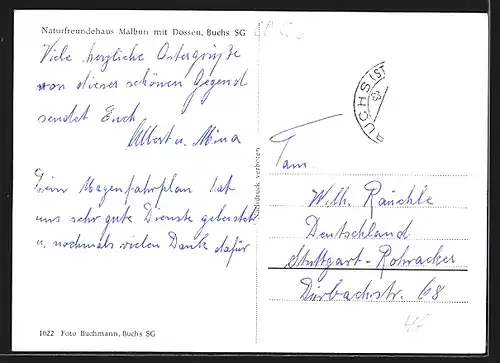 Naturfreundehaus Malbun mit Dossen, Buchs SG
Viele herzliche Ostergrüße
von dieser schönen Gegend
sendet Euch
Albert u. Mina
Ein Magenfahrplan hat
uns sehr gute Dienste geleistet
u. nochmals vielen Dank dafür
1022 Foto Buchmann, Buchs SG
Nachdruck verboten
BUCHS (ST
Fam.
Wilh. Räuchle
Deutschland
Stuttgart-Rohracker
Dürbachstr. 68